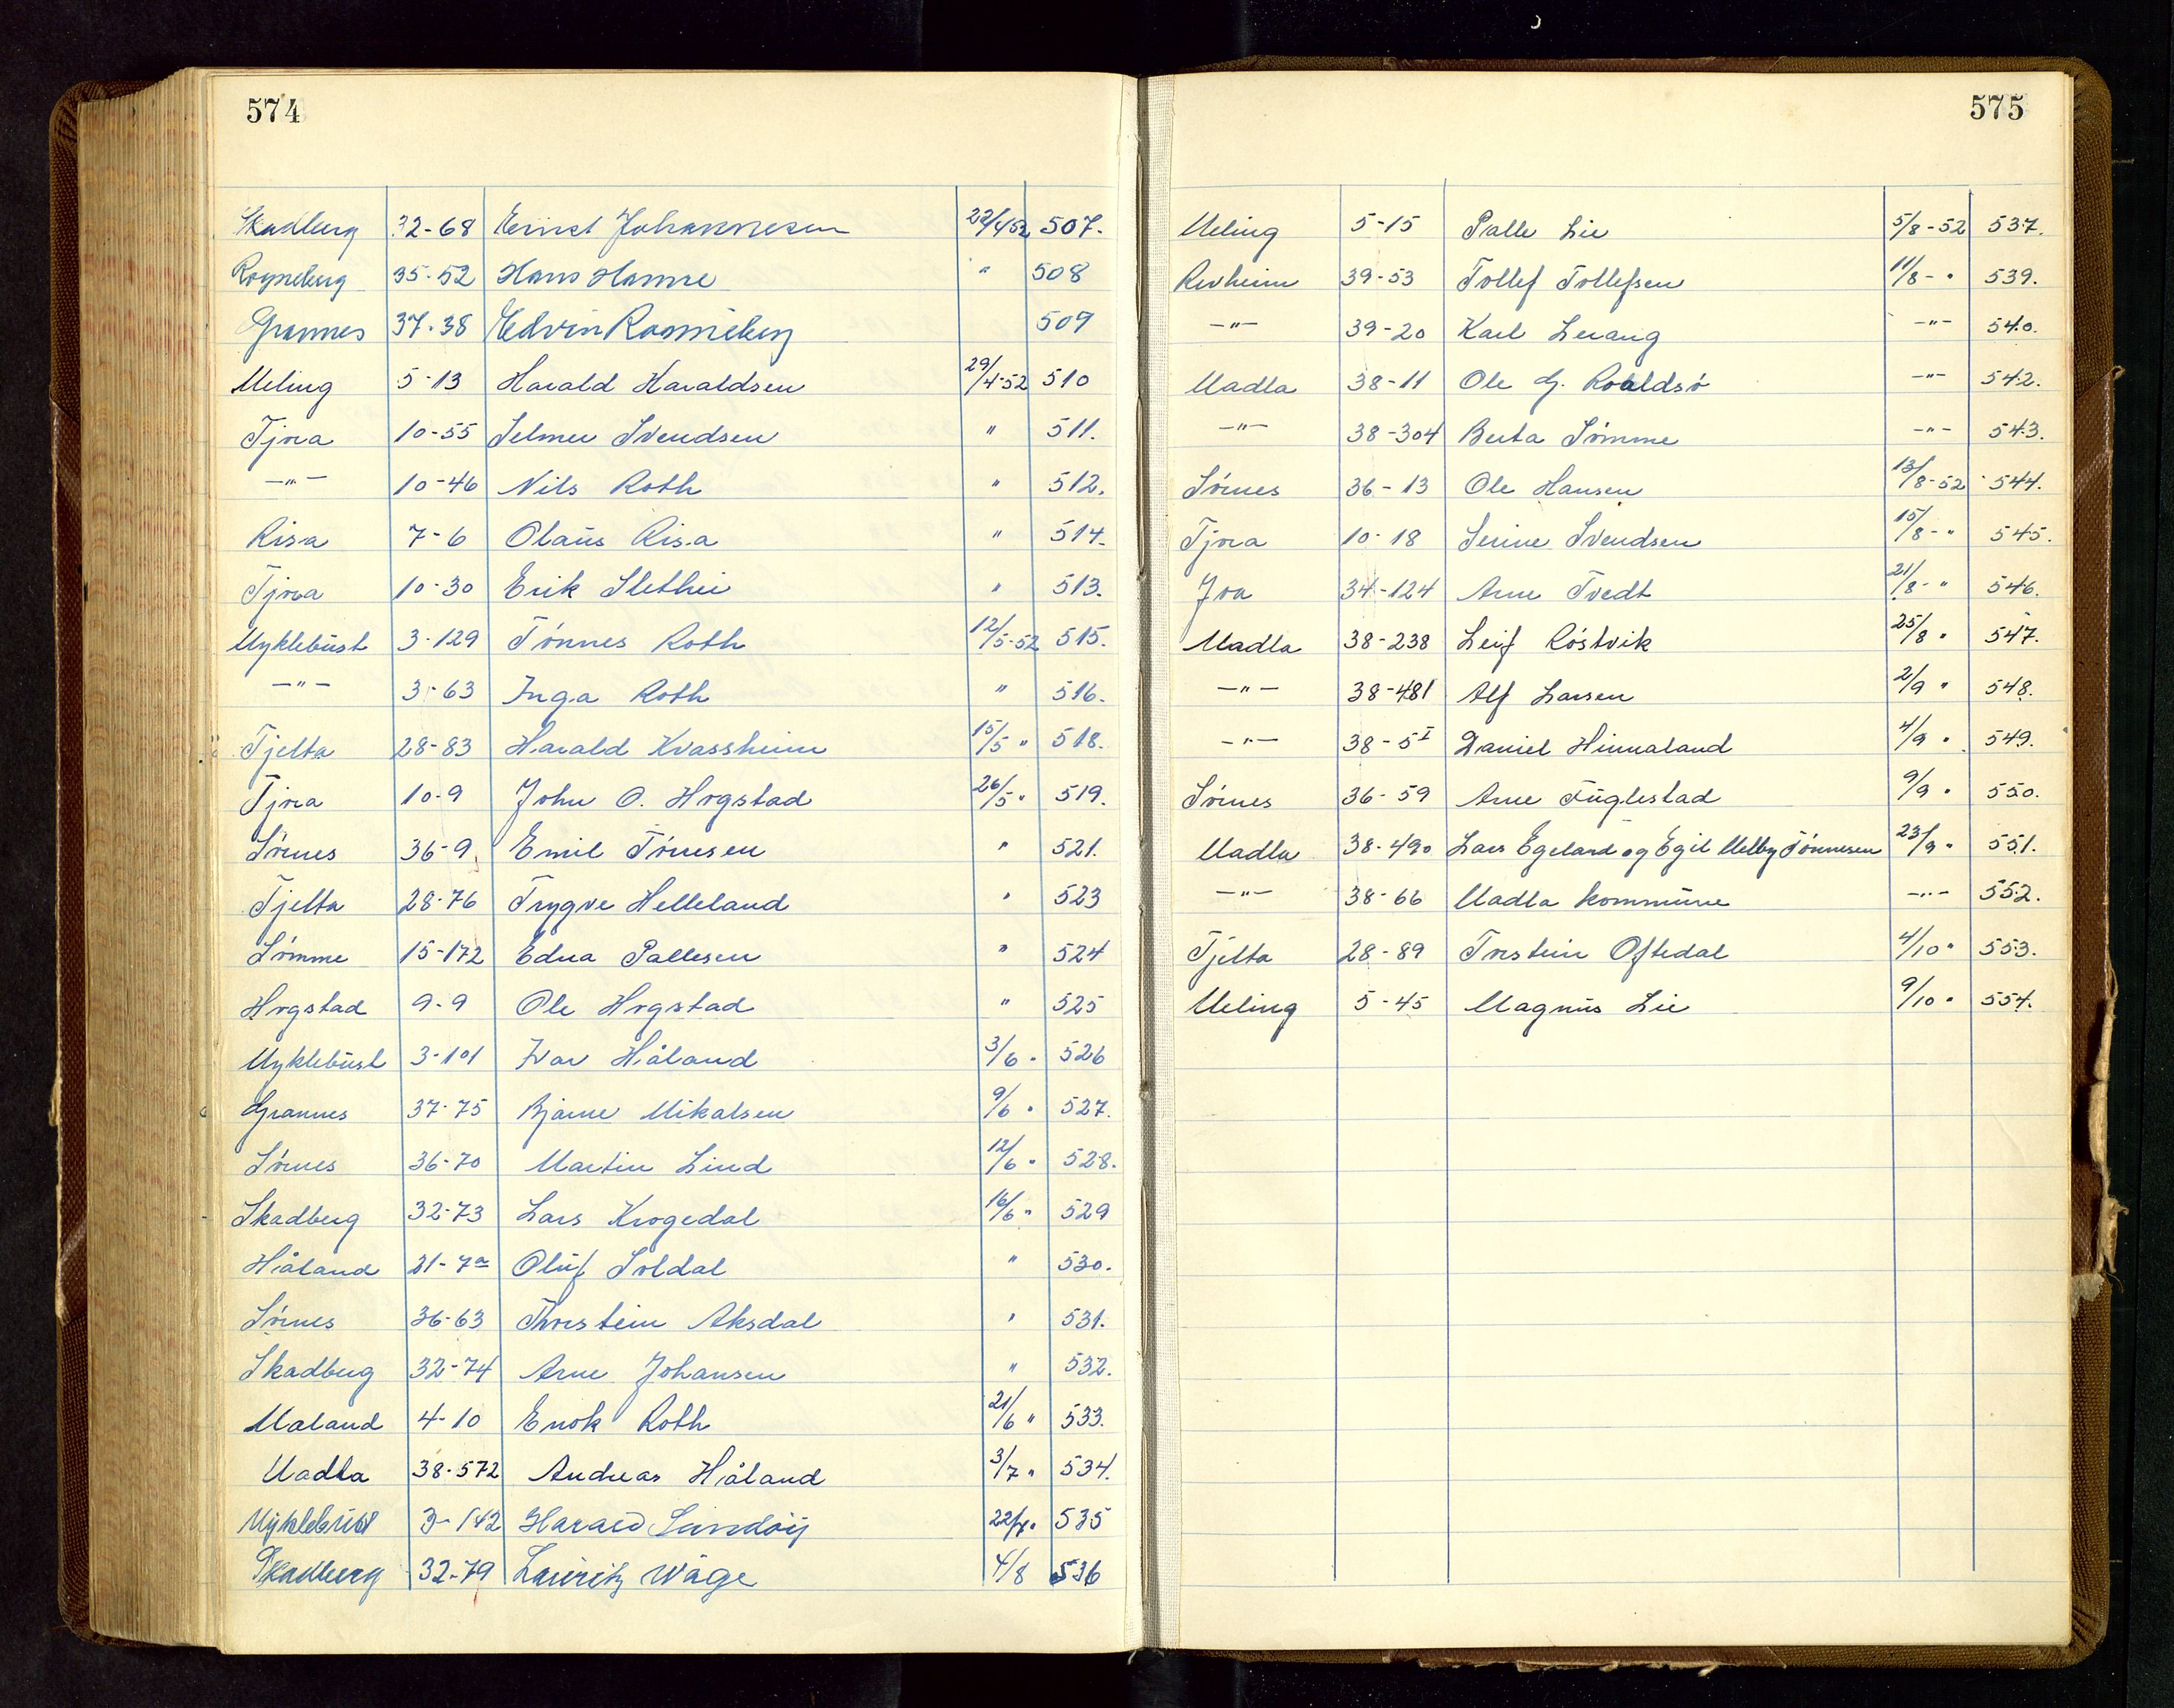 574
Skadberg 32-68 Ernst Johannesen 22/4 52 507.
Røyneberg 35-52 Hans Hamre " 508
Grannes 37-38 Edvin Røyneberg 509
Meling 5-13 Harald Haraldsen 29/4-52 510
Tjora 10-55 Selmer Svendsen " 511.
—"— 10-46 Nils Roth " 512.
Risa 7-6 Olaus Risa " 514.
Tjora 10-30 Erik Slethei " 513.
Myklebust 3-129 Tønnes Roth 12/5-52 515.
—"— 3-63 Inga Roth " 516.
Tjelta 28-83 Harald Kvassheim 15/5 " 518.
Tjora 10-9 John O. Hogstad 26/5 " 519.
Sømes 36-9 Emil Tønnesen " 521.
Tjelta 28-76 Trygve Helleland " 523
Sømme 15-172 Edna Pallesen " 524
Hogstad 9-9 Ole Hogstad " 525
Myklebust 3-101 Ivar Håland 3/6 " 526
Grannes 37-75 Bjarne Mikalsen 9/6 " 527.
Sømes 36-70 Martin Lind 12/6 " 528.
Skadberg 32-73 Lars Krogedal 16/6 " 529
Håland 21-7a Oluf Soldal " 530.
Sømes 36-63 Thorstein Aksdal " 531.
Skadberg 32-74 Arne Johansen " 532.
Maland 4-10 Enok Roth 21/6 " 533.
Madla 38-572 Andreas Håland 3/7 " 534.
Myklebust 3-142 Harald Sundøy 22/7 " 535
Skadberg 32-79 Lauritz Wåge 4/8 536
575
Meling 5-15 Palle Lie 5/8-52 537.
Revheim 39-53 Tollef Tollefsen 11/8- " 539.
—"— 39-20 Karl Lerang —"— 540.
Madla 38-11 Ole G. Roaldsø —"— 542.
—"— 38-304 Berta Sømme —"— 543.
Sømes 36-13 Ole Hansen 13/8-52 544.
Tjora 10-18 Serine Svendsen 15/8- " 545.
Joa 34-124 Arne Tvedt 21/8- " 546.
Madla 38-238 Leif Røstvik 25/8 " 547.
—"— 38-481 Alf Larsen 2/9 " 548.
—"— 38-5 I Daniel Hinnaland 4/9 " 549.
Sømes 36-59 Arne Fuglestad 9/9 " 550.
Madla 38-490 Lars Egeland og Egil Melby Tønnesen 23/9 " 551.
—"— 38-66 Madla kommune —"— 552.
Tjelta 28-89 Torstein Oftedal 4/10 " 553.
Meling 5-45 Magnus Lie 9/10 " 554.